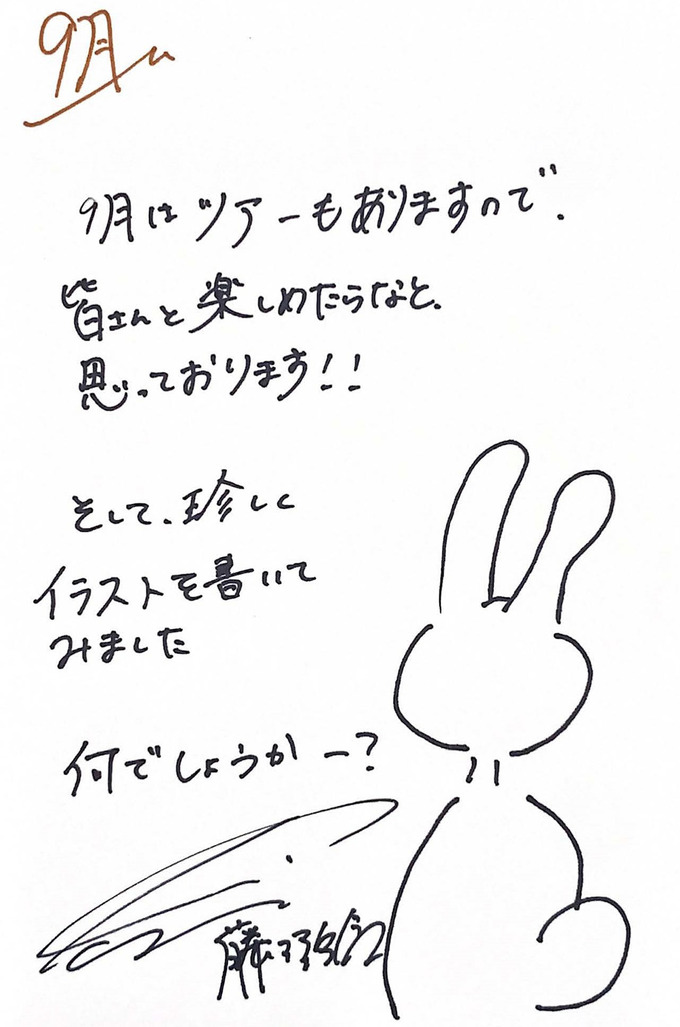 9月
9月はツアーもありますので、
皆さんと楽しめたらなと、
思っております！！
そして、珍しく
イラストを書いて
みました
何でしょうかー？